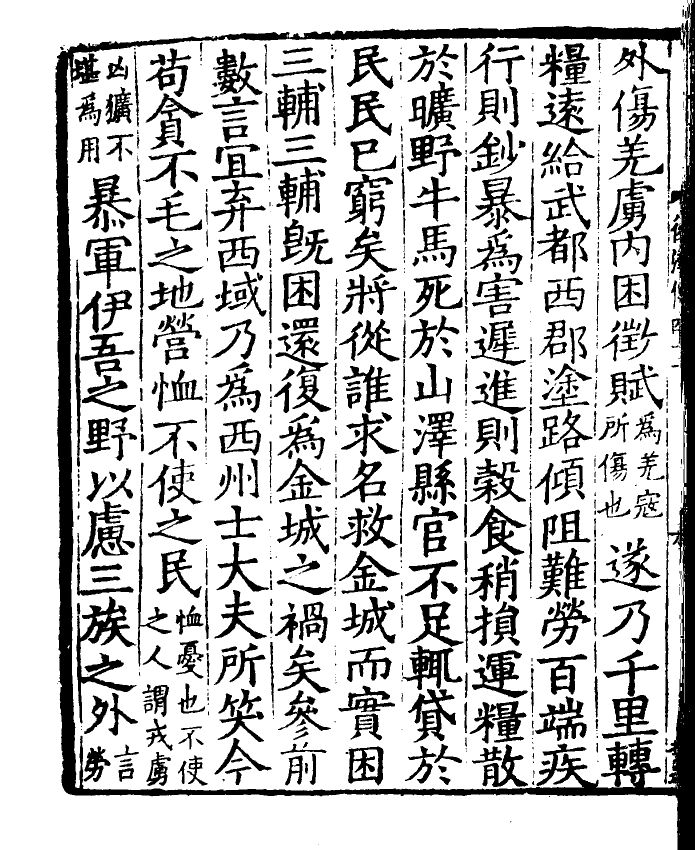 外傷羌虜內困徵賦為羌寇所傷也遂乃千里轉
糧遠給武都西郡塗路傾阻難勞百端疾
行則鈔暴為害遲進則穀食稍損運糧散
於曠野牛馬死於山澤縣官不足輒貸於
民民已窮矣將從誰求名救金城而實困
三輔三輔旣困還復為金城之禍矣參前
數言宜弃西域乃為西州士大夫所笑今
苟貪不毛之地營恤不使之民恤憂也不使之人謂戎虜
凶獷不堪為用暴軍伊吾之野以慮三族之外言勞